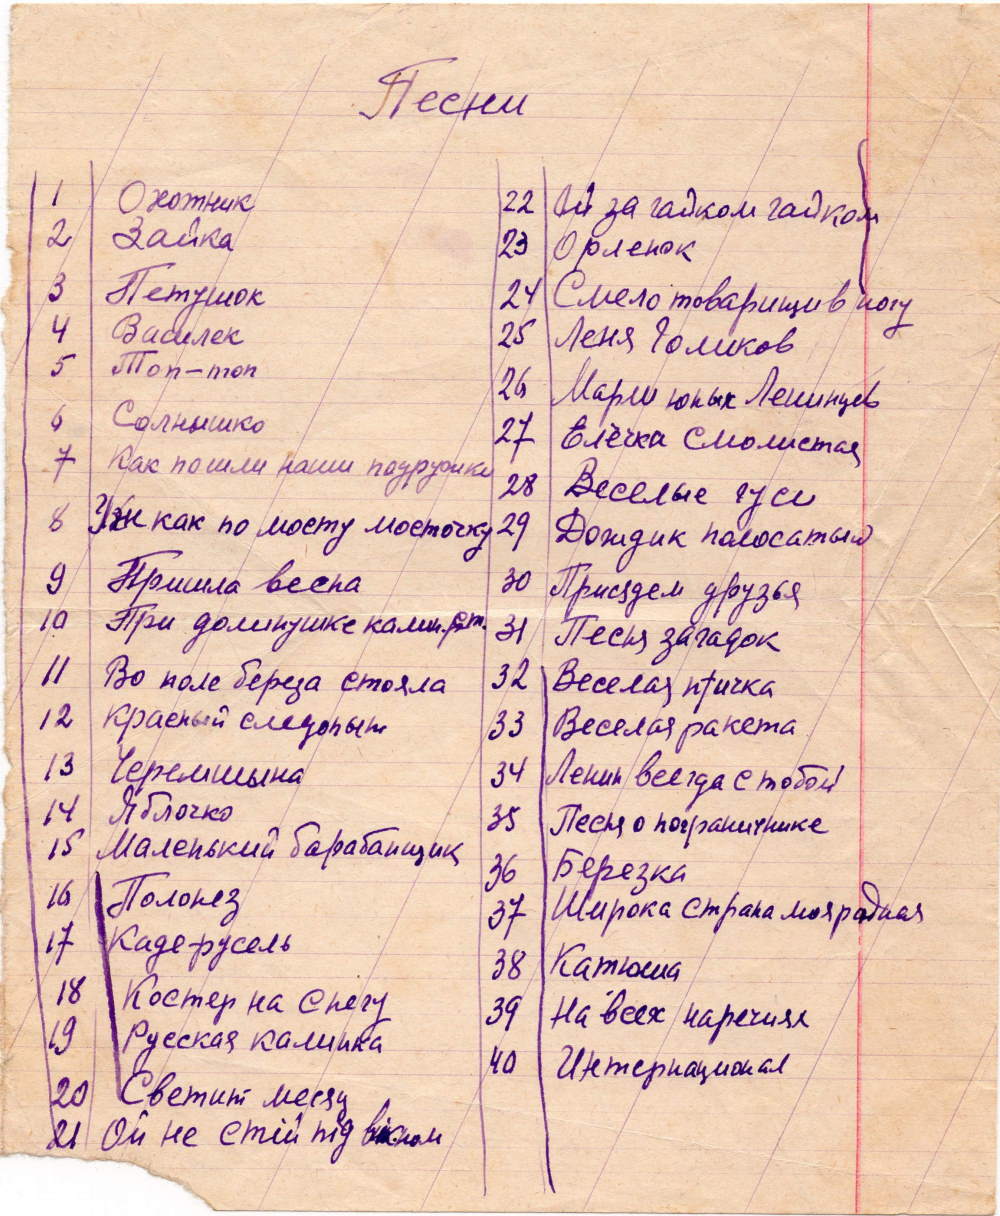 Песни
1 Охотник
2 Зайка
3 Петушок
4 Василек
5 Топ-топ
6 Солнышко
7 Как пошли наши подружки
8 как по мосту мосточку
9 Пришла весна
10 При долинушке калин. ст.
11 Во поле береза стояла
12 Красный следопыт
13 Черемшына
14 Яблочко
15 Маленький барабанщик
16 Полонез
17 Кадерусель
18 Костер на снегу
19 Русская калинка
20 Светит месяц
21 Ой не стій під вікном
22 Ой за гайком гайком
23 Орленок
24 Смело товарищи в ногу
25 Леня Голиков
26 Марш юных Ленинцев
27 Елёчка смолистая
28 Веселые гуси
29 Дождик полосатый
30 Присядем друзья
31 Песня загадок
32 Веселая птичка
33 Веселая ракета
34 Ленин всегда с тобой
35 Песня о пограничнике
36 Березка
37 Широка страна моя родная
38 Катюша
39 На всех наречиях
40 Интернационал